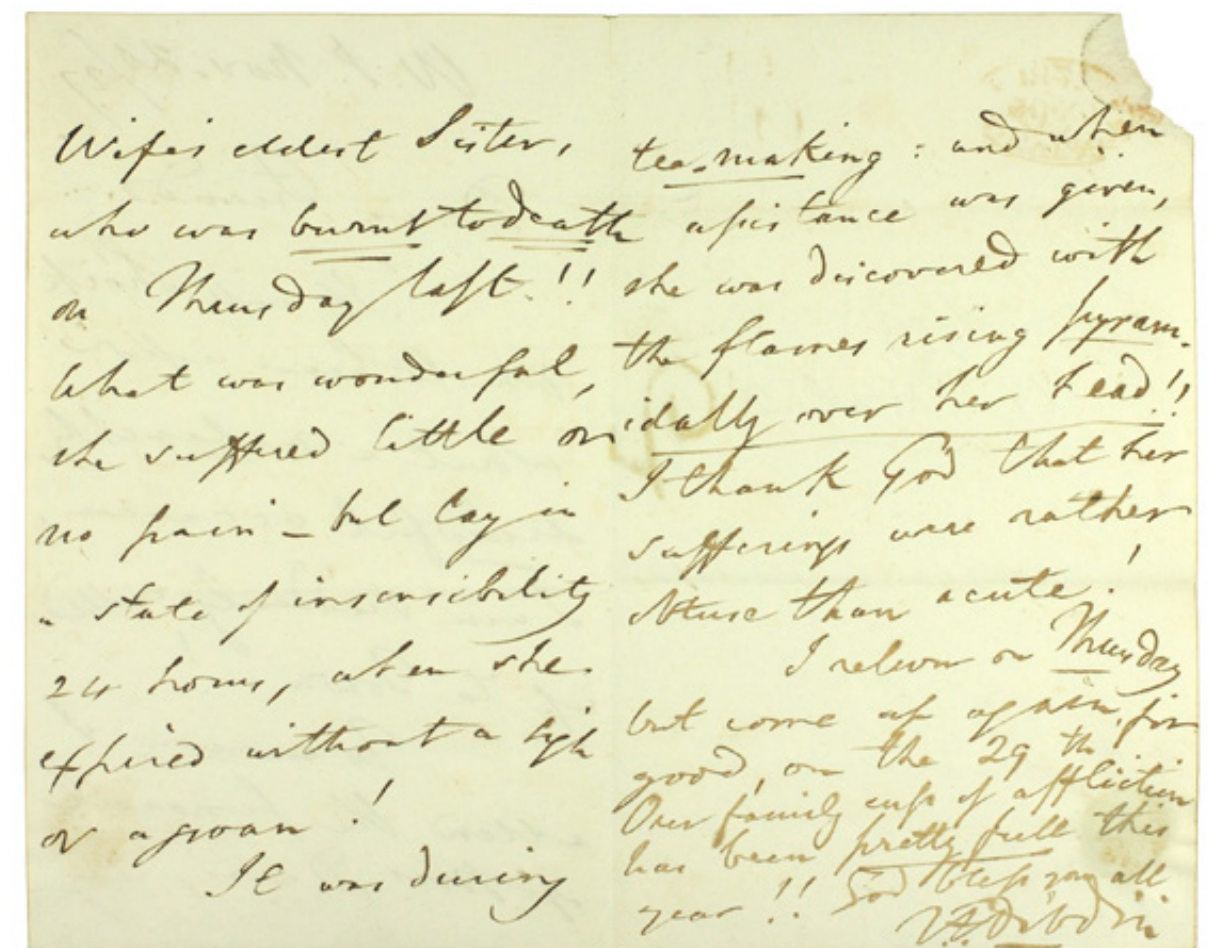 Wife's eldest Sister,
who was burnt to death
on Thursday last!!
What was wonderful,
she suffered little or
no pain — but lay in
a state of insensibility
24 hours, when she
expired without a sigh
or a groan!
It was during
tea-making: and when
assistance was given,
she was discovered with
the flames rising pyram-
idally over her head!!
I thank God that her
sufferings were rather
obtuse than acute!
I return on Thursday
but come up again, for
good, on the 29th
Our family cup of affliction
has been pretty full this
year!! God bless you all
TFDibdin